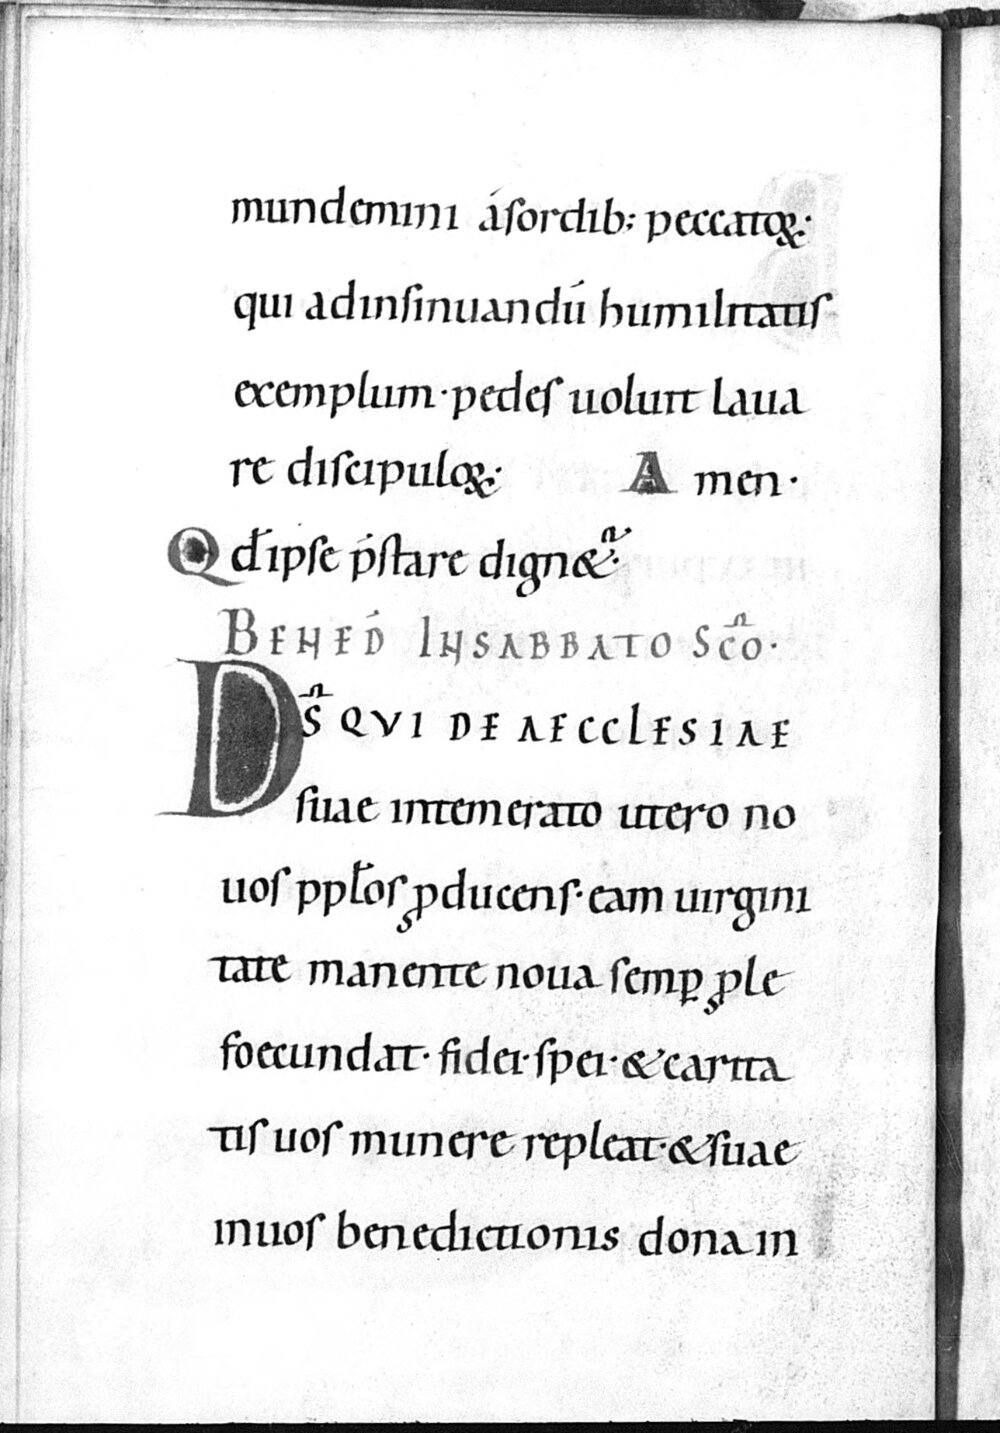 mundemini ásordib; peccatoꝝ·
qui adinsinuandū humilitatis
exemplum· pedes uoluit laua
re discipuloꝝ· Amen·
Qd̄ ipse p̄stare dignet̄·
BENED̄ INSABBATO SC̄O·
DS̄ QVI DE AECCLESIAE
suae intemerato utero no
uos ppl̄os ꝓducens· eam uirgini
tate manente noua semꝑ ꝓle
foecundat· fidei· spei· & carita
tis uos munere repleat· & suae
inuos benedictionis dona in